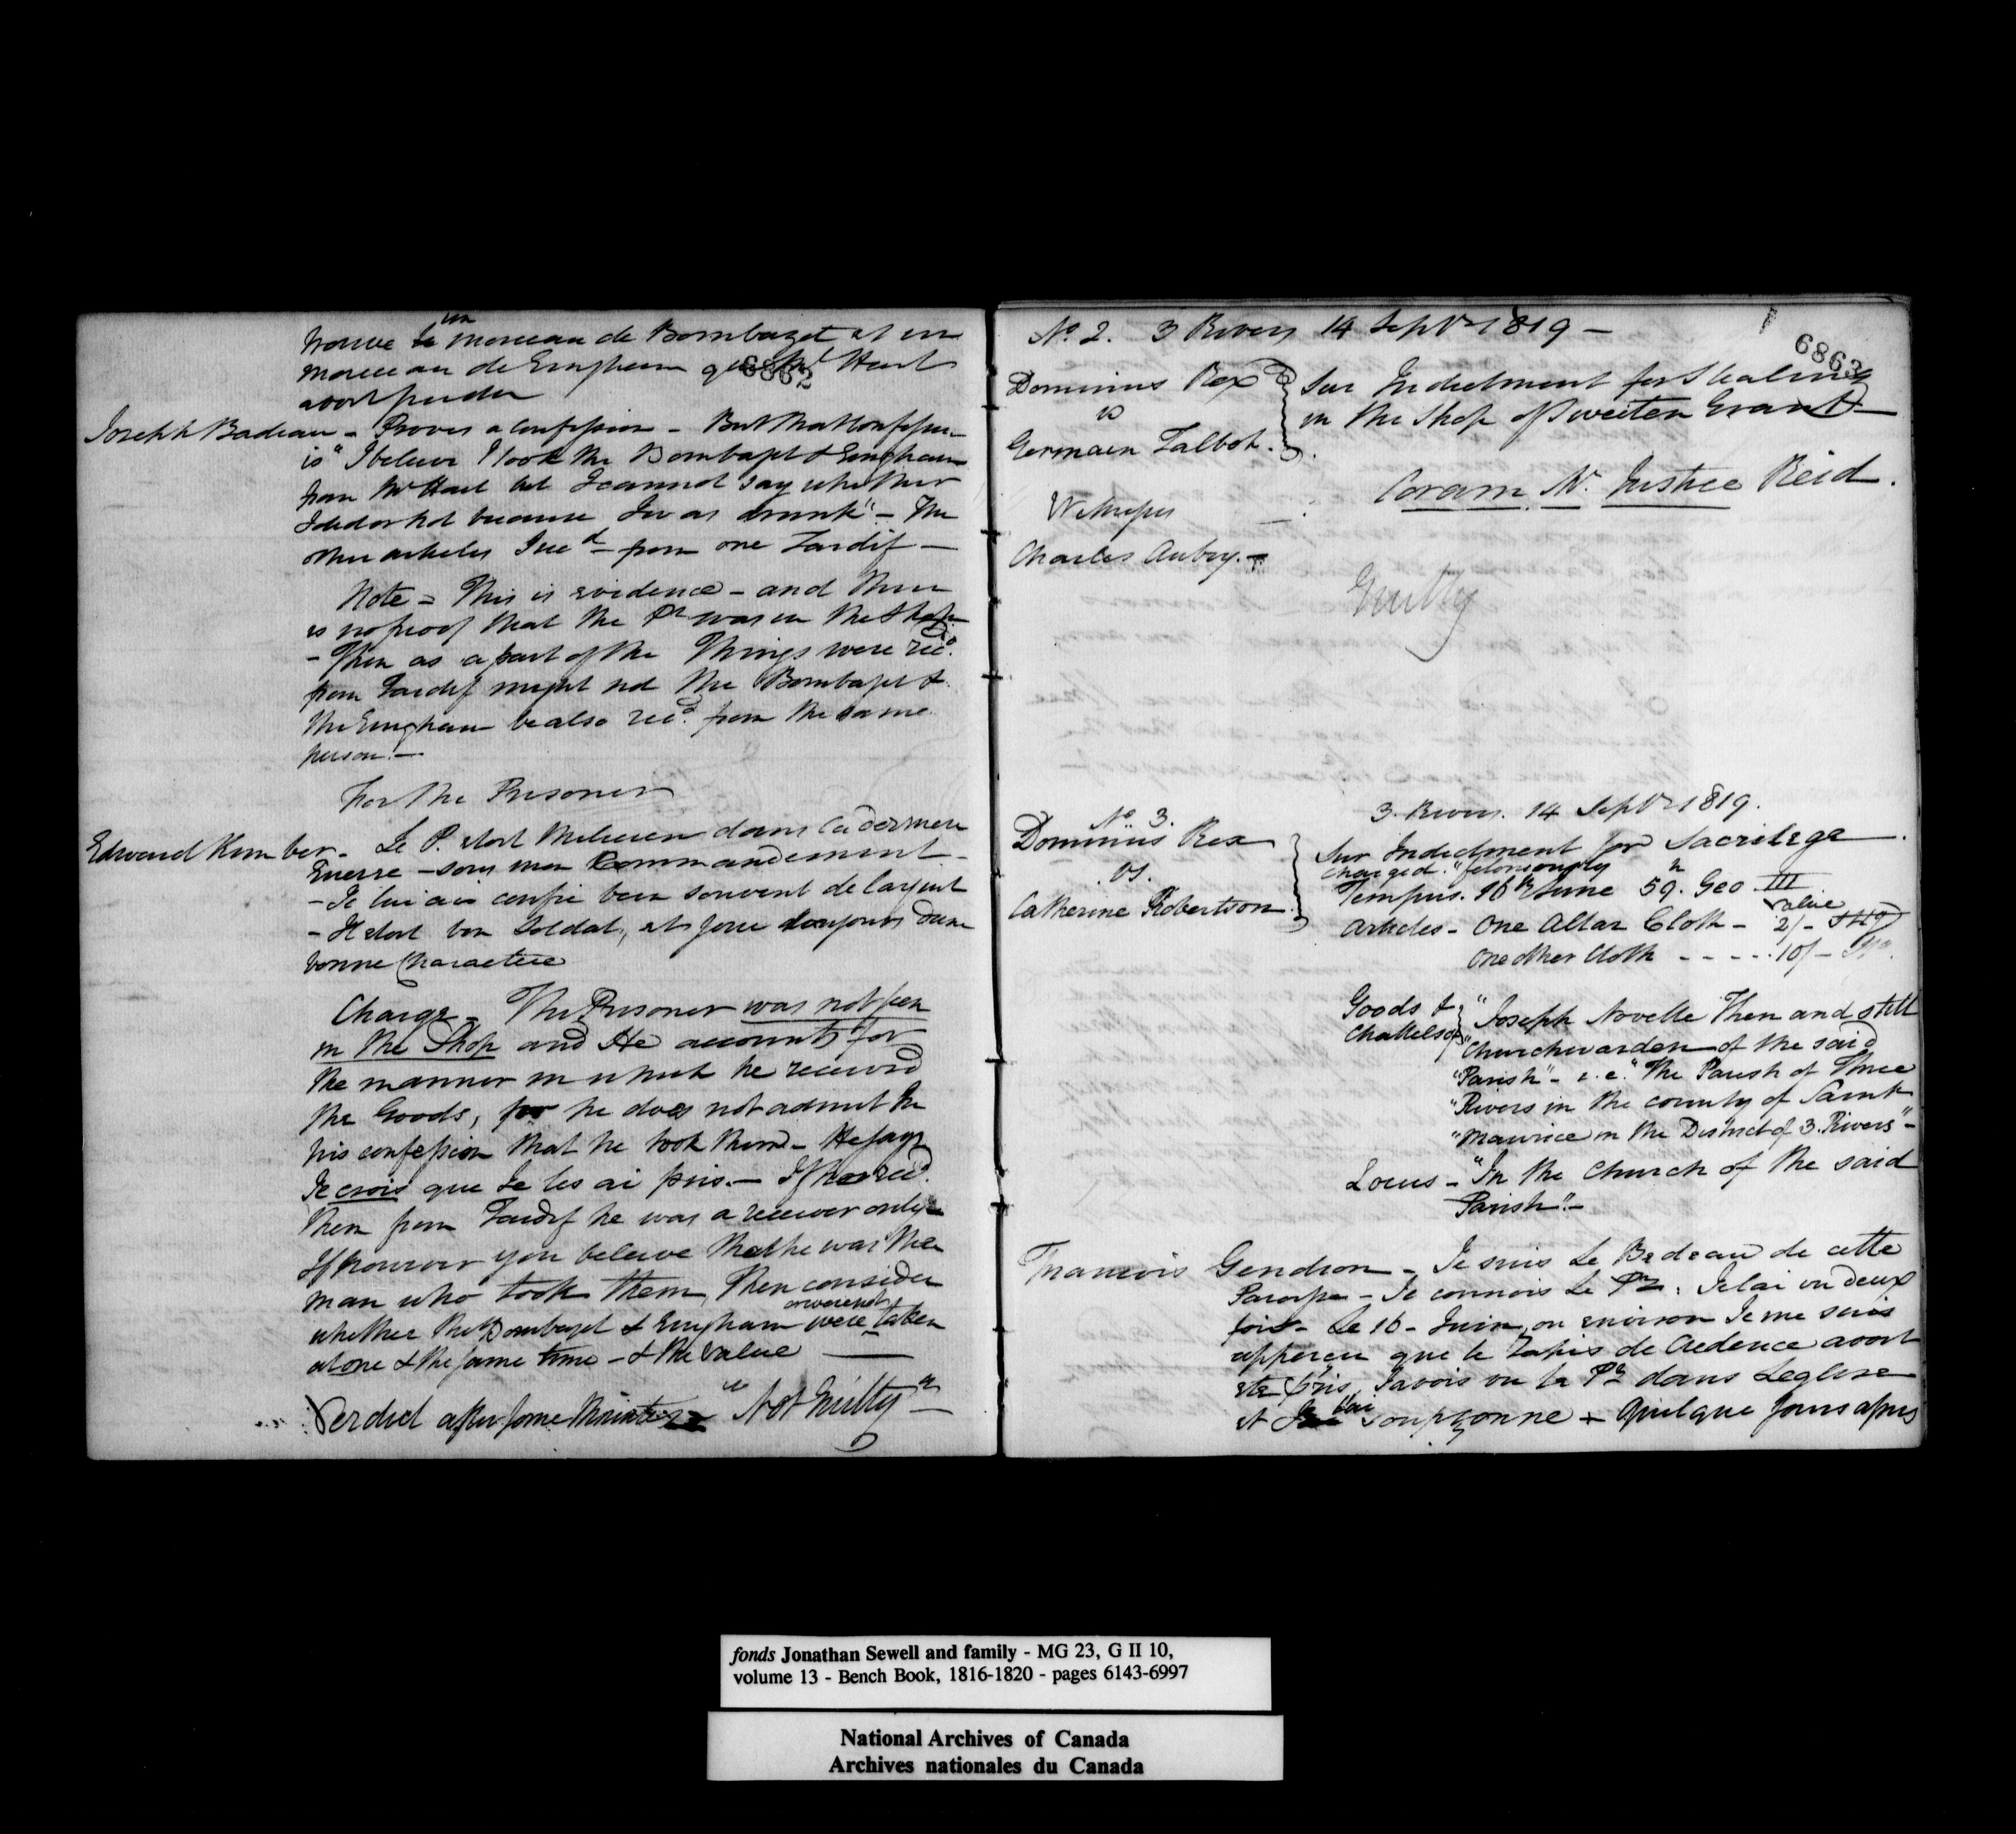 trouvé le un morceau de Bombazet et un
morceau de Gingham que Mr Hart
avoit perdu
6862
Joseph Badeau - Proves a confession - But that confession
is "I believe I took the Bombazet & Gingham
from Mr Hart but I cannot say whether
I did or not because I was drunk" - The
other articles I recd from one Tardif -
Note = This is evidence - and there
is no proof that the Pr was in the Shop
- Then as a part of the Things were recd
from Tardif might not the Bombazet &
the Gingham be also recd from the same
person. -
For the Prisoner
Edward Kimber - Le P. etoit Milicien dans la derniere
Guerre - sous mon Commandement -
- Je lui ai confié bien souvent de largent
- Il etoit bon Soldat, et joui toujours dune
bonne Charactere
Charge - The Prisoner was not seen
in the Shop and He accounts for
the manner in which he received
the Goods, for he does not admit in
his confession that he took them - He says
Je crois que Je les ai pris. - If he recd
them from Tardif he was a receiver only -
If however you believe that he was the
man who took them, Then consider
or were not
whether the Bombazet & Gingham were taken
at one & the same time - & the value -
Verdict after some Minutes "Not Guilty" -
No 2. 3 Rivers 14 Septr 1819 -
6863
Dominus Rex
vs
Germain Talbot.
Sur Indictment for Stealing
in the Shop of Sweeten Grant -
Coram Mr. Justice Reid.
Witnesses
Charles Aubry. -
Guilty
3 Rivers. 14 Septr 1819.
No 3.
Dominus Rex
vs.
Catherine Robertson
Sur Indictment for Sacrilege
Charged "feloniously
Tempus. 16th June 59. Geo III
value
Articles - One Altar Cloth - 2/- Stg
One other Cloth - - - - - 10/-
Goods & Chattels of "Joseph Novelle Then and still
"Churchwarden of the said
"Parish" - i.e. "The Parish of Three
"Rivers in the county of Saint
"Maurice in the District of 3. Rivers" -
Locus - "In the Church of the said
Parish" -
Francois Gendron - Je suis Le Bedeau de cette
Paroisse - Je connois Le Pr : Je lai vu deux
fois - Le 16 - Juin, ou environ Je me suis
apperçu que le Tapis de Credence avoit
eté pris, Javois vu la Pr dans Leglise
et Je lai soupçonné - Quelque Jours apres
fonds Jonathan Sewell and family - MG 23, G II 10,
volume 13 - Bench Book, 1816-1820 - pages 6143-6997
National Archives of Canada
Archives nationales du Canada